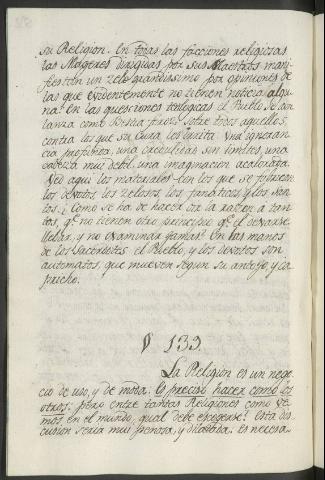 su Religion. En todas las facciones religiosas
las Mugeres dirigidas por sus Maestros mani-
fiestan un zelo grandissimo por opiniones de
las que evidentemente no tienen noticia algu-
na. En las questiones teologicas el Pueblo se aba-
lanza como bestia feroz sobre todos aquellos,
contra los que su Cura los excita. Una ignoran-
cia profunda, una credulidad sin limites, una
cabeza mui debil, una imaginacion acalorada.
Ved aqui los materiales con los que se forman
los devotos, los zelosos, los fanaticos y los San-
tos. ¿Como se ha de hacer oir la razon á tan-
tos, qe. no tienen otro principio qe. el dexarse
llebar, y no examinar jamas? En las manos
de los Sacerdotes el Pueblo, y los devotos son
automatos, que mueven segun su antojo y ca-
pricho.
§ 139.
La Religion es un nego-
cio de uso, y de moda: Es preciso hacer como los
otros: pero entre tantas Religiones como ve-
mos en el mundo, qual debe escogerse? Esta dis-
cusion seria mui penosa, y dilatada: es necesa-